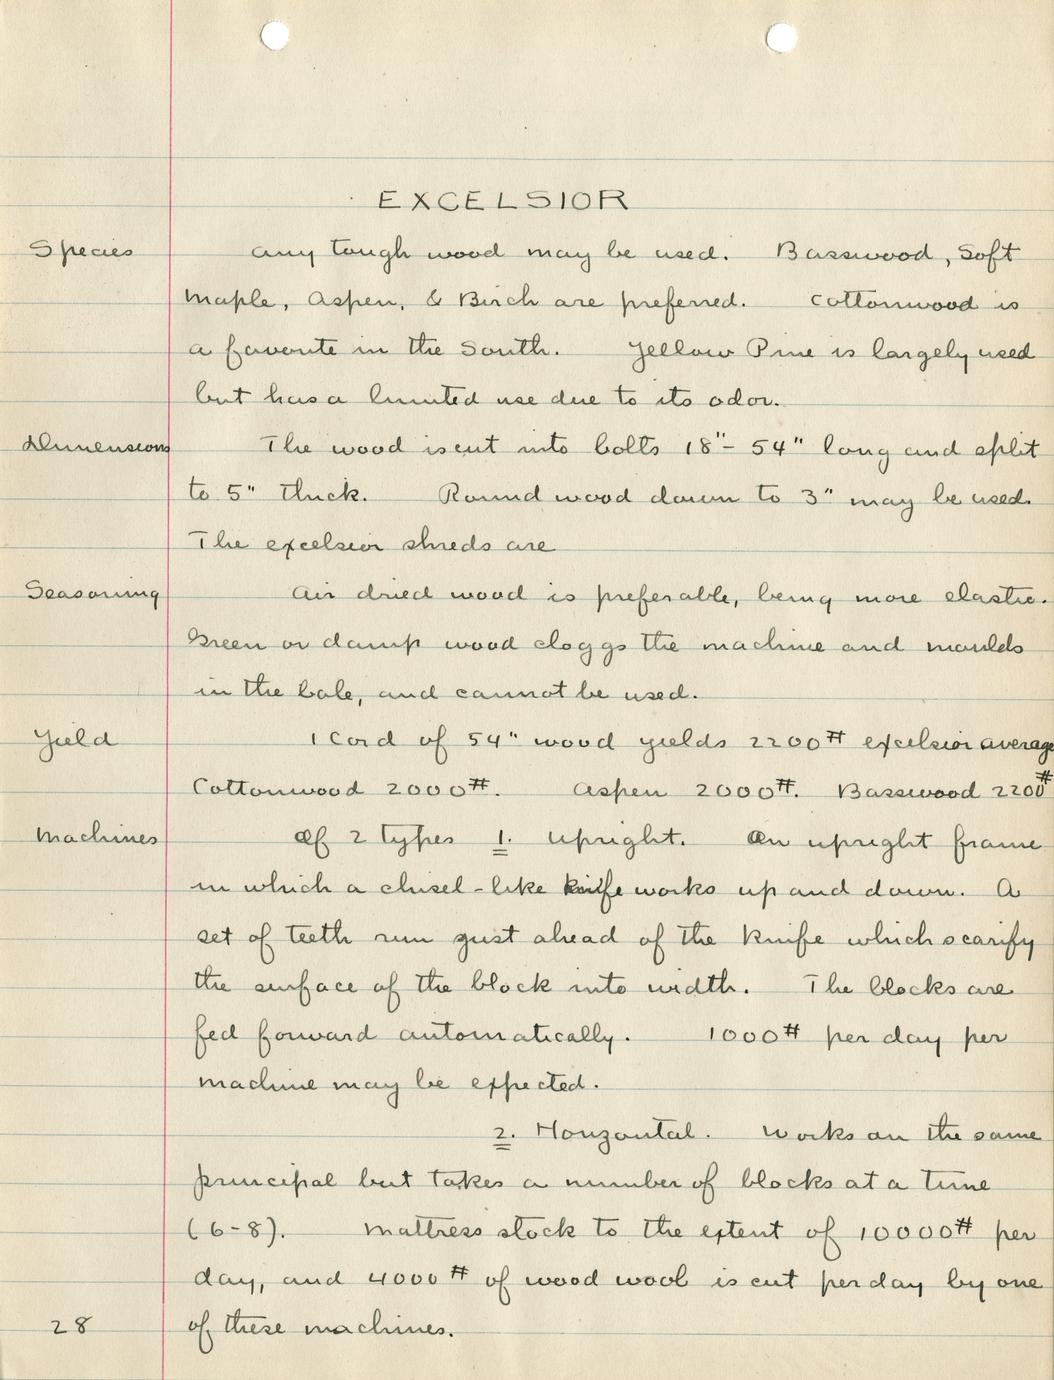 EXCELSIOR
Species any tough wood may be used. Basswood, Soft
Maple, Aspen, & Birch are preferred. Cottonwood is
a favorite in the South. Yellow Pine is largely used
but has a limited use due to its odor.
Dimensions The wood is cut into bolts 18"- 54" long and split
to 5" thick. Round wood down to 3" may be used.
The excelsior shreds are
Seasoning Air dried wood is preferable, being more elastic.
Green or damp wood cloggs the machine and moulds
in the bale, and cannot be used.
Yield 1 Cord of 54" wood yields 2200# excelsior average
Cottonwood 2000#. Aspen 2000#. Basswood 2200#
Machines Of 2 types 1. Upright. An upright frame
in which a chisel-like knife works up and down. A
set of teeth run just ahead of the knife which scarify
the surface of the block into width. The blocks are
fed forward automatically. 1000# per day per
machine may be expected.
2. Horizontal. Works on the same
principal but takes a number of blocks at a time
(6-8). Mattress stock to the extent of 10000# per
day, and 4000# of wood wool is cut per day by one
28 of these machines.